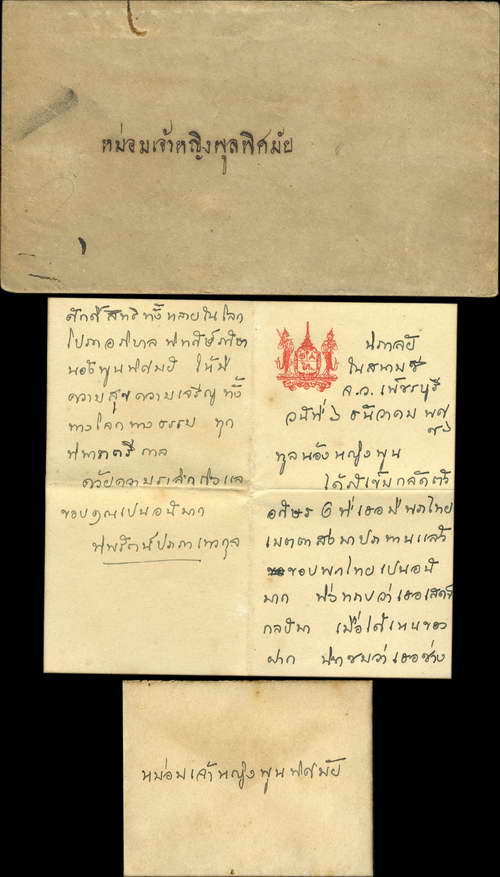 หม่อมเจ้าหญิงพูลพิศมัย
ศักดิ์สิทธิ์ทั้งหลายในโลก
โปรดอภิบาล
ให้มี
ความสุขความเจริญทั้ง
ทางโลกทางธรรม ทุก
กาล
ด้วยความรำลึกถึงและ
ขอบคุณเปนอันมาก
เทวกุล
ในสหาย
จ.ว. เพ็ชรบุรี
วันที่ ๖ ธันวาคม พศ
๘๖
ทูลน้องหญิงพูน
ได้รับเข็มกลัดตัว
อักษร ที่เธอมีพระไทย
เมตตาส่งมาประทานแล้ว
ขอบพระไทยเปนอัน
มาก พึ่งทราบว่าเธอเสด็จ
กลับมา เมื่อได้เห็นของ
ฝาก ว่าเธอช่าง
หม่อมเจ้าหญิงพูนพิศมัย